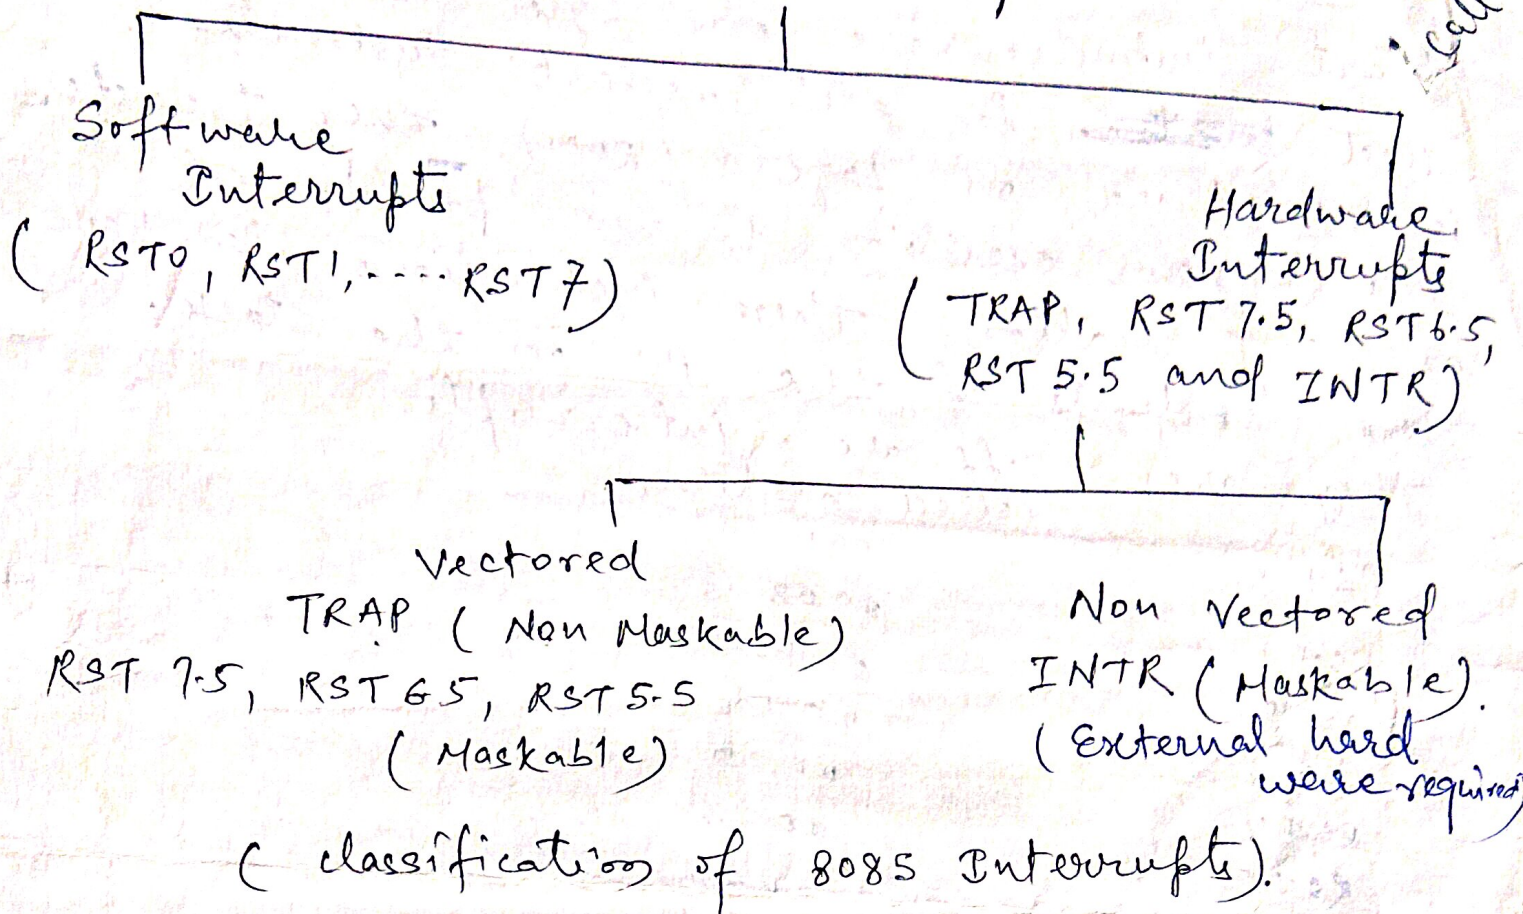 Call
Software
Interrupts
( RST0, RST1, .... RST7)
Hardware
Interrupts
( TRAP, RST 7.5, RST 6.5,
RST 5.5 and INTR)
Vectored
TRAP ( Non Maskable)
RST 7.5, RST 65, RST 5.5
( Maskable)
Non Vectored
INTR ( Maskable).
( External hard
ware required)
( classification of 8085 Interrupts).